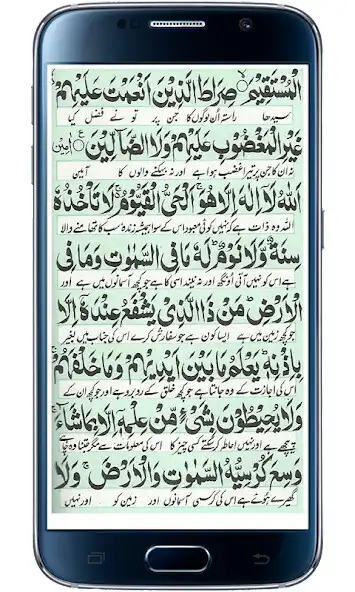 الْمُسْتَقِيْمَ ۙ صِرَاطَ الَّذِيْنَ اَنْعَمْتَ عَلَيْهِمْ
سیدھا راستہ اُن لوگوں کا جن پر تو نے فضل کیا
غَيْرِ الْمَغْضُوْبِ عَلَيْهِمْ وَلَا الضَّآلِّيْنَ ۧ اٰمِيْن
نہ ان کا جن پر تیرا غضب ہوا ہے اور نہ بہکنے والوں کا آمین
اَللّٰهُ لَآ اِلٰهَ اِلَّا هُوَ ۚ اَلْحَىُّ الْقَيُّوْمُ ۚ لَا تَاْخُذُهٗ
اللہ وہ ذات ہے کہ نہیں کوئی معبود اس کے سوا ہمیشہ زندہ سب کا تھامنے والا
سِنَةٌ وَّلَا نَوْمٌ ؕ لَهٗ مَا فِى السَّمٰوٰتِ وَمَا فِى
ہے اس کو نہیں آتی اُونگھ اور نہ نیند اسی کا ہے جو کچھ آسمانوں میں ہے اور
الْاَرْضِ ؕ مَنْ ذَا الَّذِىْ يَشْفَعُ عِنْدَهٗٓ اِلَّا
جو کچھ زمین میں ہے ایسا کون ہے جو سفارش کرے اس کی جناب میں بغیر
بِاِذْنِهٖ ؕ يَعْلَمُ مَا بَيْنَ اَيْدِيْهِمْ وَمَا خَلْفَهُمْ ۚ
اس کی اجازت کے وہ جانتا ہے جو کچھ خلق کے روبرو ہے اور جو کچھ ان کے
وَلَا يُحِيْطُوْنَ بِشَىْءٍ مِّنْ عِلْمِهٖٓ اِلَّا بِمَا شَآءَ ۚ
پیچھے ہے اور نہیں احاطہ کر سکتے کسی چیز کا اس کی معلومات سے مگر جتنا وہ چاہے
وَسِعَ كُرْسِيُّهُ السَّمٰوٰتِ وَالْاَرْضَ ۚ وَلَا
گھیرے ہوئے ہے اس کی کرسی آسمانوں اور زمین کو اور نہیں